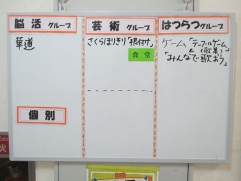 脳活グループ
華道
個別
芸術グループ
さくらほりきり「根付け」
食堂
はつらつグループ
ゲーム「テーブルゲーム」
「みんなで歌おう」